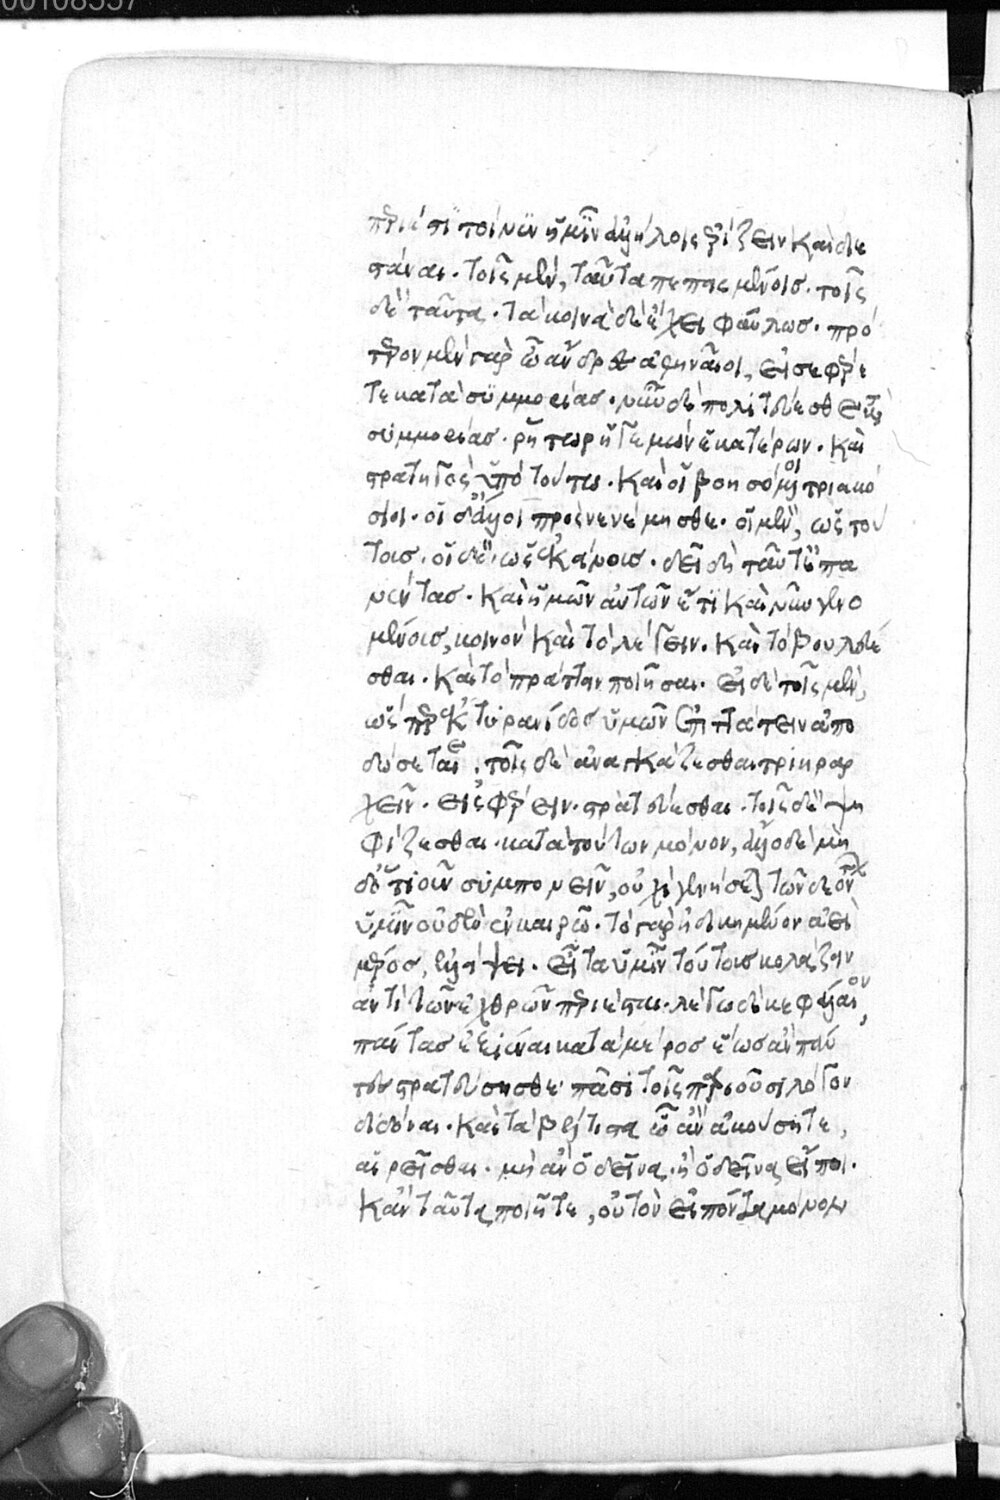 περίεστι τοίνυν ἡμῖν ἀλλήλοις ἐρίζειν καὶ διε
στάναι. τοῖς μὲν, ταῦτα πεπεισμένοις. τοῖς
δὲ ταῦτα. τὰ κοινὰ δὲ ἔχει φαύλως. πρό
τερον μὲν γὰρ ὦ ἄνδρες ἀθηναῖοι, εἰσεφέρε
τε κατὰ συμμορίας. νῦν δὲ πολιτεύεσθε κατὰ
συμμορίας. ῥήτωρ ἡγεμὼν ἑκατέρων. καὶ
στρατηγὸς ὑπὸ τούτω. καὶ οἱ βοησόμενοι τριακό
σιοι. οἱ δ' ἄλλοι προσνενέμησθε. οἱ μὲν, ὡς τού
τοις. οἱ δὲ, ὡς ἐκείνοις. δεῖ δὴ ταῦτ' ἐπα
νέντας. καὶ ἡμῶν αὐτῶν ἔτι καὶ νῦν γενο
μένοις, κοινὸν καὶ τὸ λέγειν. καὶ τὸ βουλεύε
σθαι. καὶ τὸ πράττειν ποιῆσαι. εἰ δὲ τοῖς μὲν,
ὥσπερ ἐκ τυρανίδος ὑμῶν ἐπιτάττειν ἀπο
δώσεται, τοῖς δὲ ἀναγκάζεσθαι τριηραρ
χεῖν. εἰσφέρειν. στρατεύεσθαι. τοῖς δὲ ψη
φίζεσθαι. κατὰ τούτων μόνον, ἄλλο δὲ μὴ
δ' ὁτιοῦν συμπονεῖν, οὐχὶ γενήσεται τῶν δεόντων
ὑμῖν οὐδὲν ἐν καιρῷ. τὸ γὰρ ἠδικημένον ἀεὶ
μέρος, ἐλλείψει. εἶτα ὑμῖν τούτοις κολάζειν
ἀντὶ τῶν ἐχθρῶν περιέσται. λέγω δὲ κεφάλαιον,
πάντας ἐξιέναι κατὰ μέρος ἕως ἂν πάν
τες στρατεύσησθε πᾶσι τοῖς παριοῦσι λόγον
διδόναι. καὶ τὰ βέλτιστα ὧν ἂν ἀκούσητε,
αἱρεῖσθαι. μὴ ἂν ὁ δεῖνα. ἢ ὁ δεῖνα εἴποι.
κἂν ταῦτα ποιῆτε, οὐ τὸν εἰπόντα μόνον